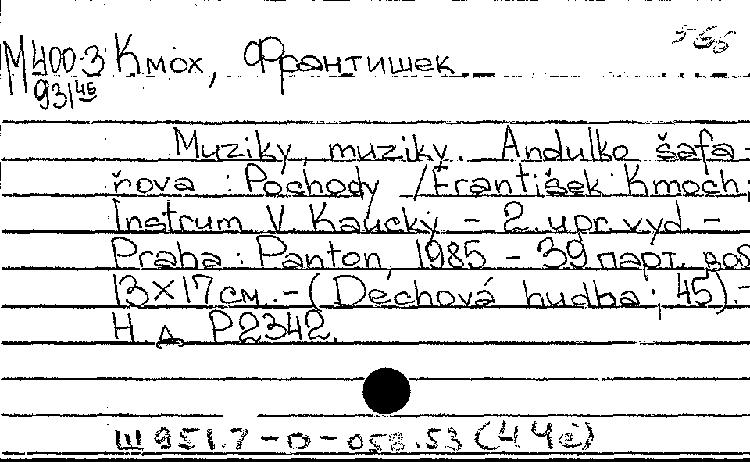 М400-3 Кмох, Франтишек
931⁴⁵
Muziky, muziky. Andulko šafa-
řova : Pochody / František Kmoch;
Instrum V. Kaucký - 2. upr. vyd. -
Praha : Panton, 1985 - 39 парт.
13×17см. - (Dechová hudba; 45). -
Н. д. P2342.
Ш 951.7-0-058.53 (4 Че)